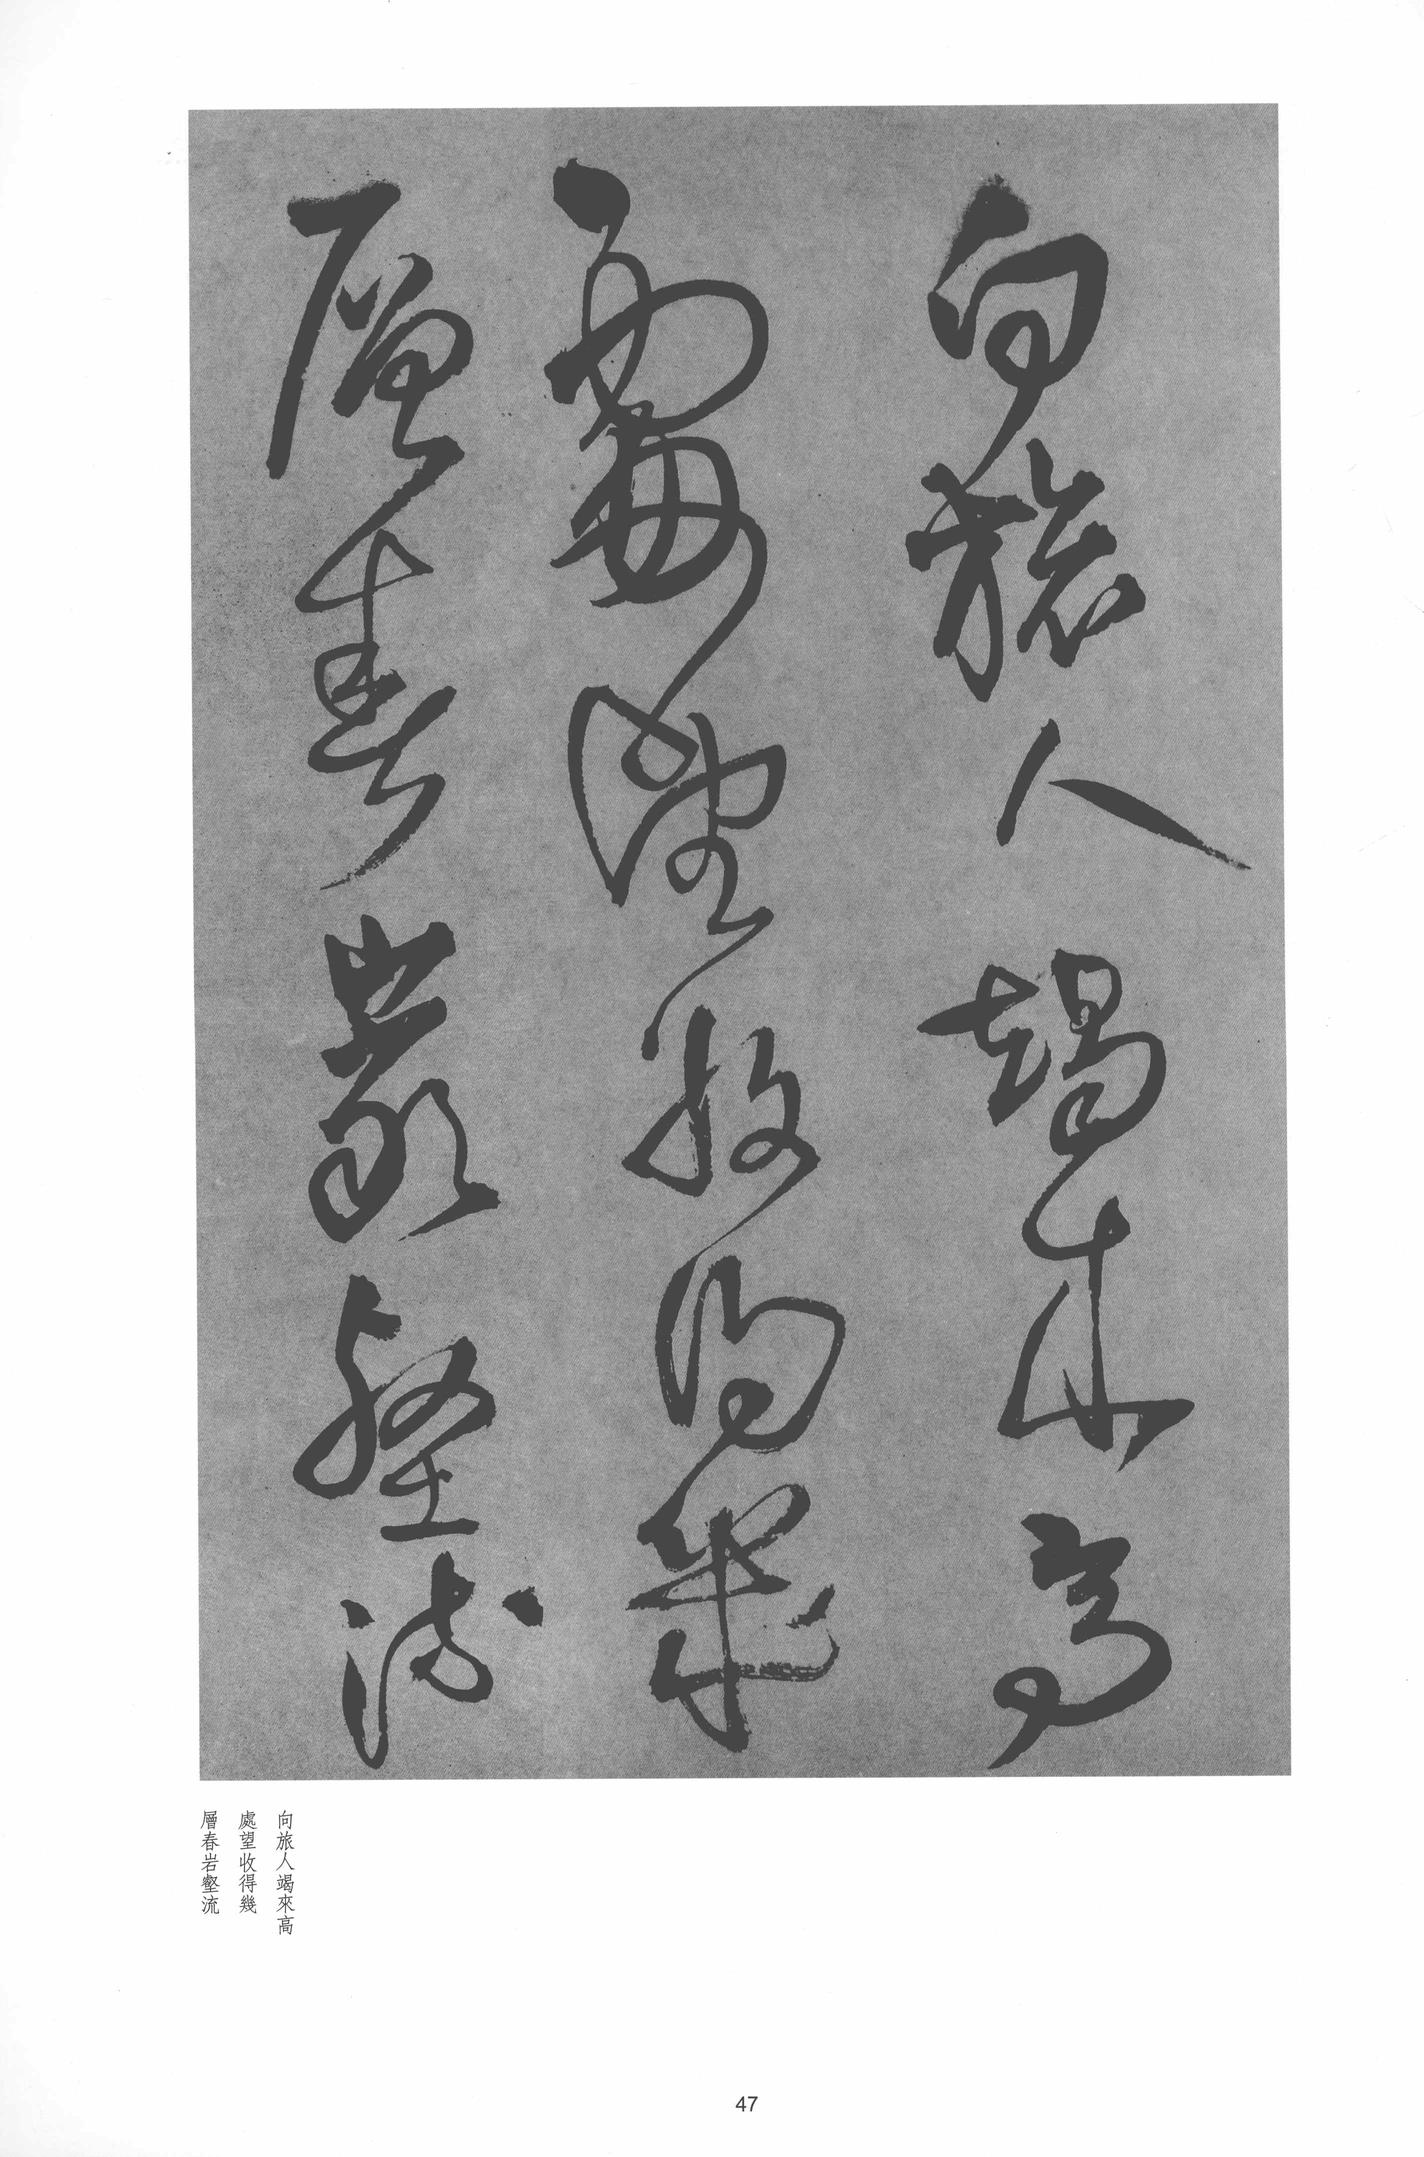 向旅人朅來高
處望收得幾
層春巖壑流
向旅人竭來高
處望收得幾
層春岩壑流
47